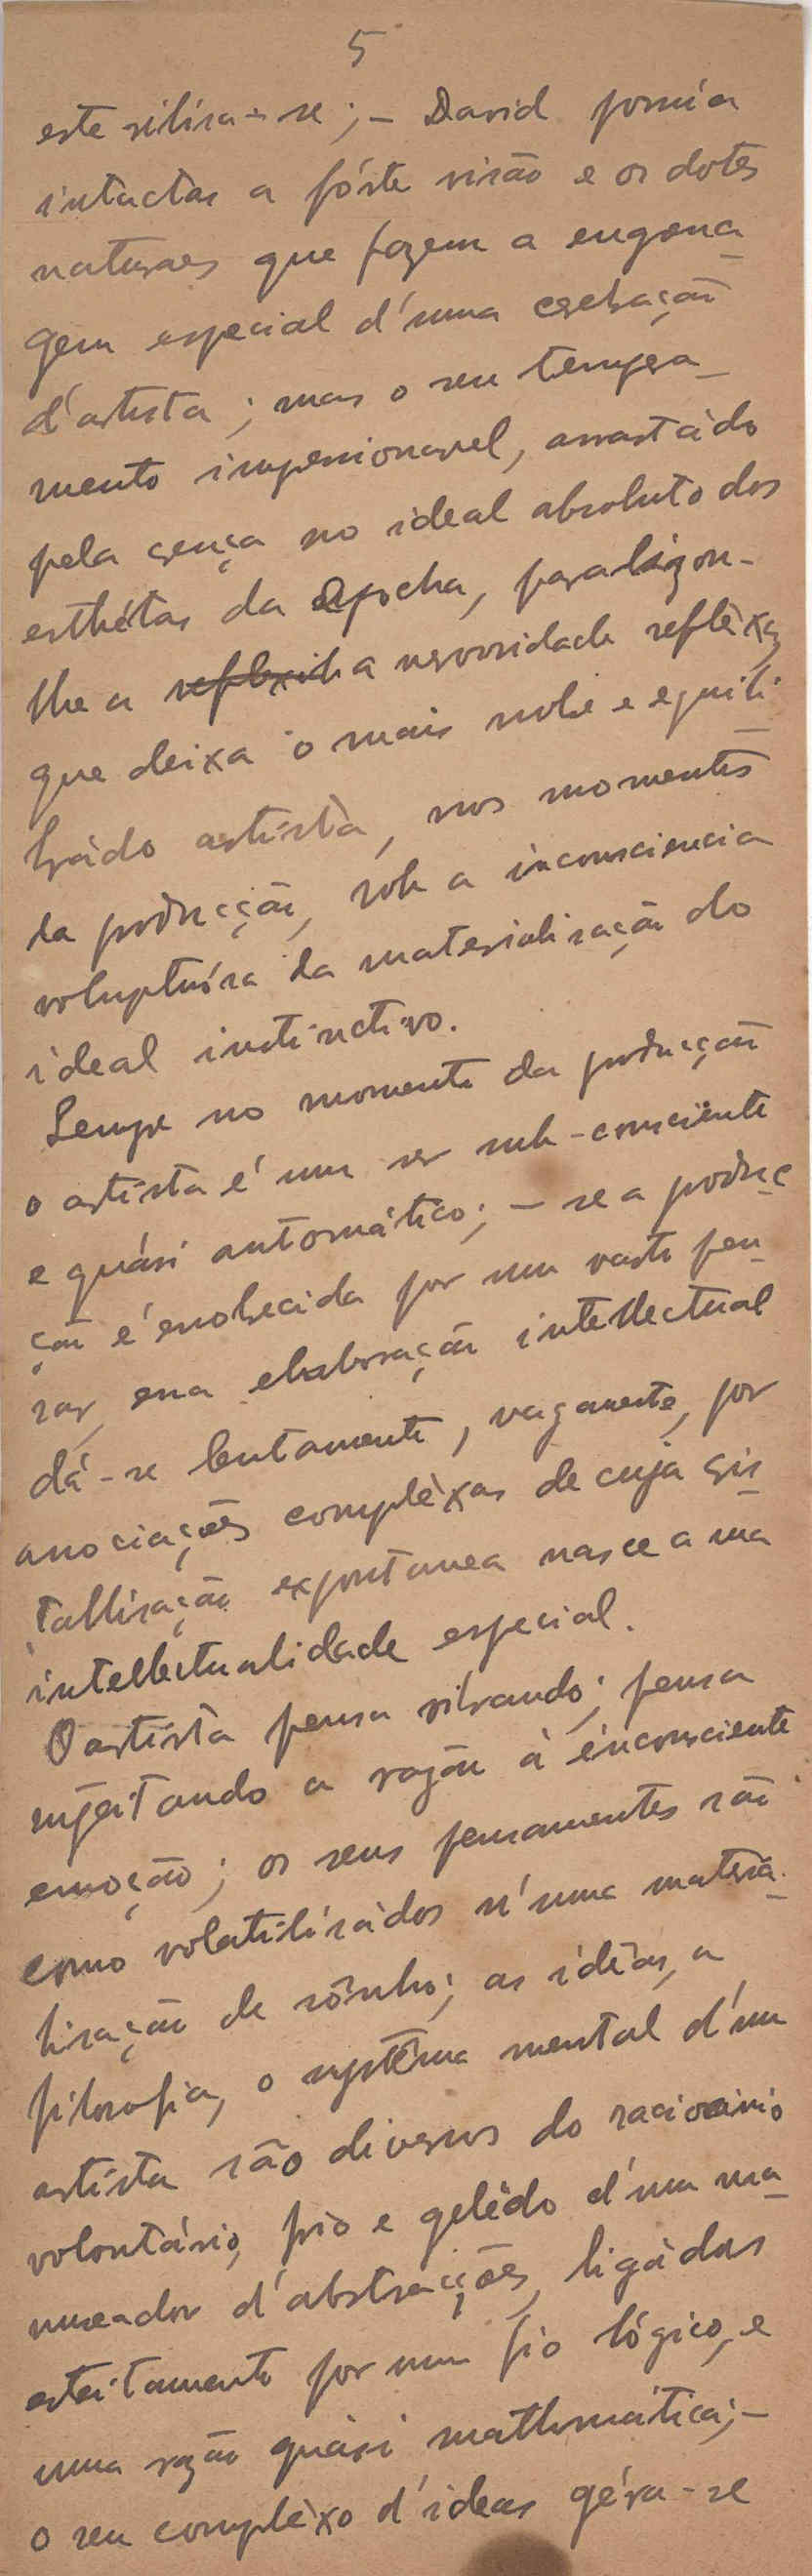 5
esterilisa-se; – David possúia
intactas a fórte visão e os dotes
naturaes que fazem a engrena_
gem especial d'uma cerebração
d'artista; mas o seu tempera_
mento impressionavel, arrastàdo
pela crença no ideal absoluto dos
esthétas da epocha, paralizou-
lhe a a nervosidade reflèxa,
que deixa o mais nobre e equili_
bràdo artista, nos momentos
da producção, sob a inconsciencia
voluptuósa da materialisação do
ideal instinctivo.
Sempre no momento da producção
o artista é um ser sub-consciente
e quási automático; – se a produc_
ção é enobrecida por um vasto pen_
sar, essa elaboração intellectual
dá-se lentamente, vagamente, por
associações complèxas de cuja cris_
tallisação expontanea nasce a sua
intellectualidade especial.
O artista pensa vibrando; pensa
sujeitando a razão á inconsciente
emoção; os seus pensamentos são
como volatilisàdos n'uma materia_
lisação de sônho; as idêas, a
filosofia, o systêma mental d'um
artista são diversos do raciocinio
voluntário, frio e gelàdo d'um ma_
nuseador d'abstracções, ligàdas
estreitamente por um fio lógico, e
uma razão quàsi mathemática; –
o seu complèxo d'ideas géra-se